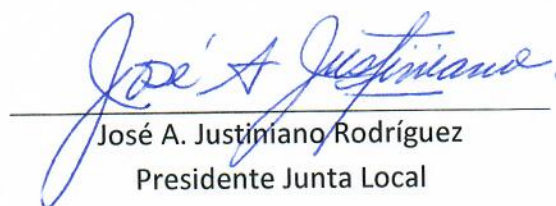 José A Justiniano
José A. Justiniano Rodríguez
Presidente Junta Local